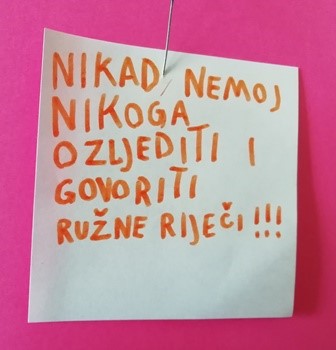 NIKAD NEMOJ
NIKOGA
OZLJEDITI I
GOVORITI
RUŽNE RIJEČI!!!